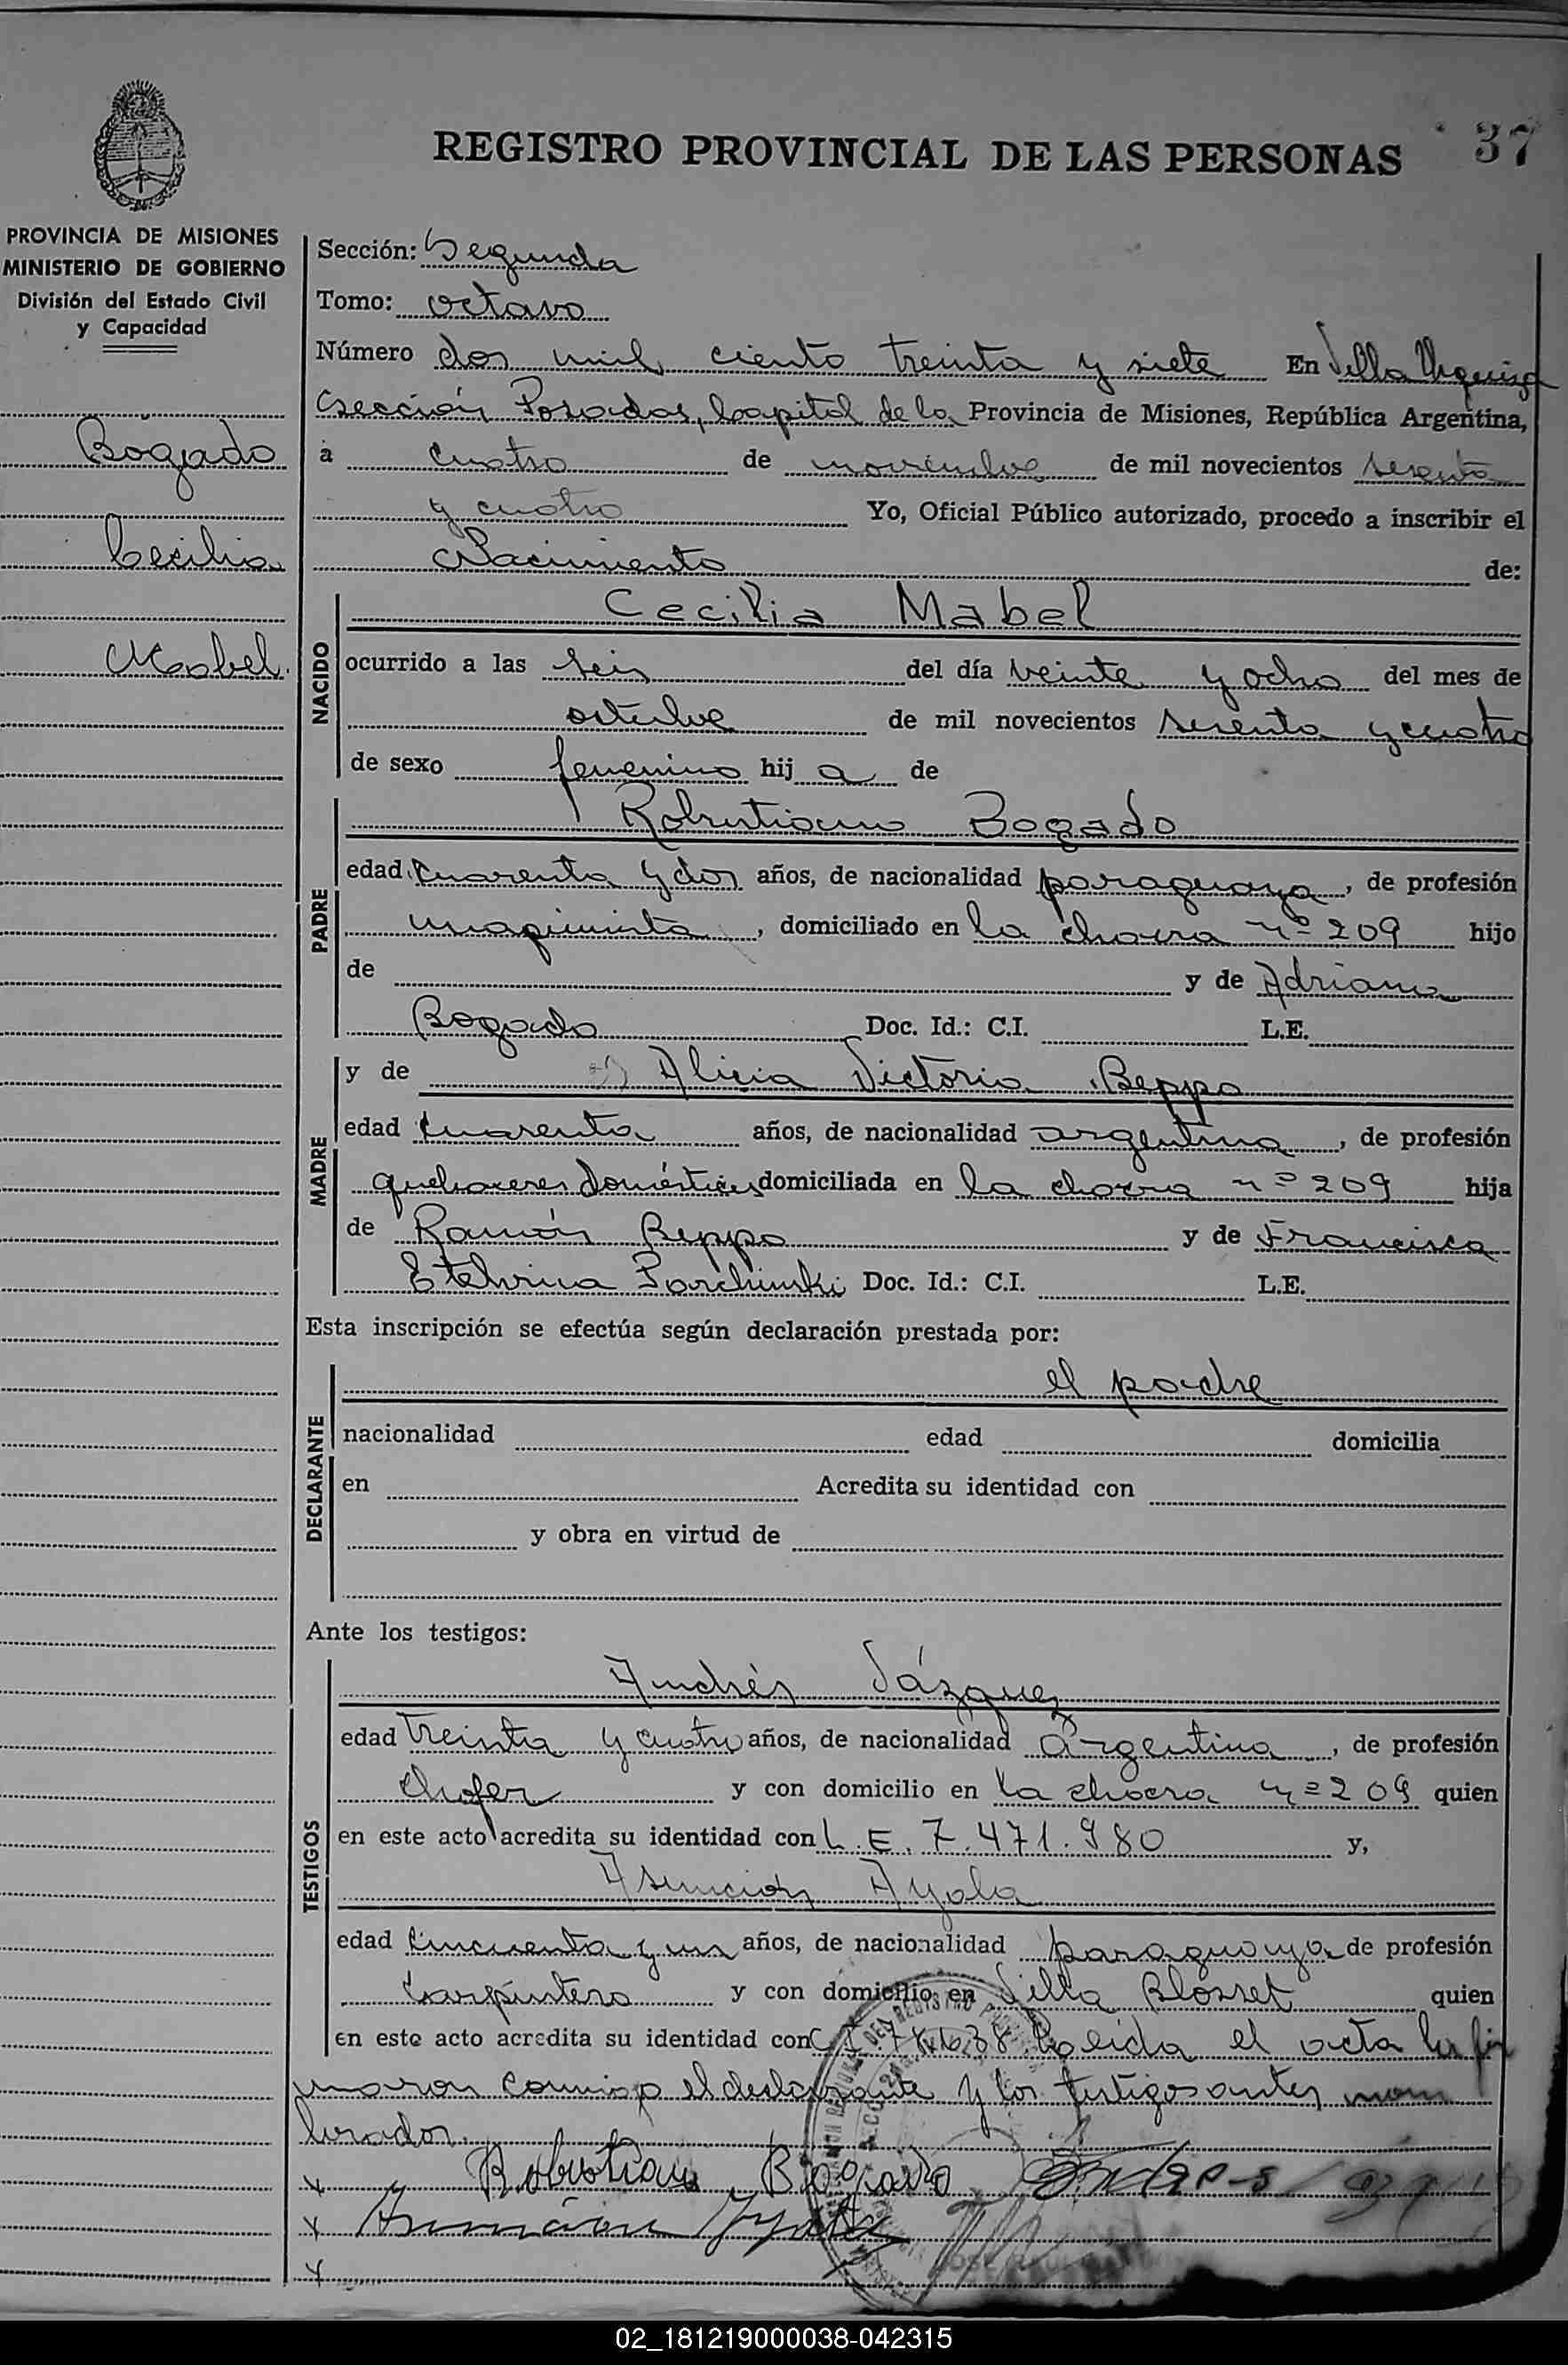 REGISTRO PROVINCIAL DE LAS PERSONAS 37
PROVINCIA DE MISIONES
MINISTERIO DE GOBIERNO
División del Estado Civil
y Capacidad
Bogado
Cecilia
Mabel.
Sección: Segunda
Tomo: octavo
Número dos mil ciento treinta y siete En Villa Urquiza
Sección Posadas, Capital de la Provincia de Misiones, República Argentina,
a cuatro de noviembre de mil novecientos sesenta
y cuatro Yo, Oficial Público autorizado, procedo a inscribir el
Nacimiento de:
NACIDO
Cecilia Mabel
ocurrido a las seis del día veinte y ocho del mes de
octubre de mil novecientos sesenta y cuatro
de sexo femenino hij a de
PADRE
Robustiano Bogado
edad cuarenta y dos años, de nacionalidad paraguaya, de profesión
maquinista, domiciliado en la chacra nº 209 hijo
de y de Adriana
Bogado Doc. Id.: C.I. L.E.
MADRE
y de Alicia Victoria Beppo
edad cuarenta años, de nacionalidad argentina, de profesión
quehaceres domésticos domiciliada en la chacra nº 209 hija
de Ramón Beppo y de Francisca
Etelvina Doc. Id.: C.I. L.E.
Esta inscripción se efectúa según declaración prestada por:
DECLARANTE
el padre
nacionalidad edad domicilia
en Acredita su identidad con
y obra en virtud de
Ante los testigos:
TESTIGOS
Andrés Vázquez
edad treinta y cuatro años, de nacionalidad argentina, de profesión
chofer y con domicilio en la chacra nº 209 quien
en este acto acredita su identidad con L.E. 7.471.980 y,
Asunción Ayala
edad cincuenta y un años, de nacionalidad paraguaya de profesión
carpintero y con domicilio en Villa Blosset quien
en este acto acredita su identidad con C.I. Leida el acta la fir
maron conmigo el declarante y los testigos antes nom
brados.
x Robustiano Bogado
x Asunción Ayala
x
02_181219000038-042315